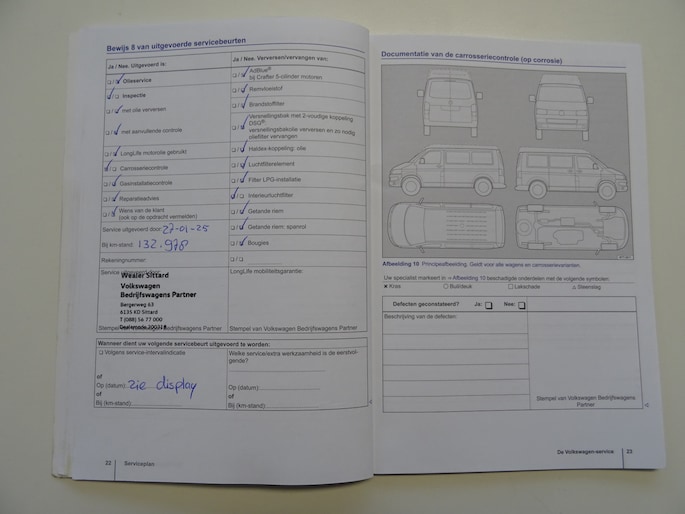 Bewijs 8 van uitgevoerde servicebeurten
Ja / Nee. Uitgevoerd is:
☐ / ☑ Olieservice
☑ / ☐ Inspectie
☐ / ☑ met olie verversen
☐ / ☑ met aanvullende controle
☐ / ☑ LongLife motorolie gebruikt
☑ / ☐ Carrosseriecontrole
☐ / ☑ Gasinstallatiecontrole
☐ / ☑ Reparatieadvies
☐ / ☑ Wens van de klant
(ook op de opdracht vermelden)
Service uitgevoerd door: 27-01-25
Bij km-stand: 132.978
Rekeningnummer:
Service uitgevoerd door:
Wealer Sittard
Volkswagen
Bedrijfswagens Partner
Bergerweg 63
6135 KD Sittard
T (088) 56 77 000
Dealercode 20031
Stempel van Volkswagen Bedrijfswagens Partner
Ja / Nee. Verversen/vervangen van:
☐ / ☑ AdBlue®
bij Crafter 5-cilinder motoren
☐ / ☑ Remvloeistof
☐ / ☑ Brandstoffilter
☐ / ☑ Versnellingsbak met 2-voudige koppeling
DSG®:
versnellingsbakolie verversen en zo nodig
oliefilter vervangen
☐ / ☑ Haldex-koppeling: olie
☐ / ☑ Luchtfilterelement
☐ / ☑ Filter LPG-installatie
☑ / ☐ Interieurluchtfilter
☐ / ☑ Getande riem
☐ / ☑ Getande riem: spanrol
☐ / ☑ Bougies
☐ / ☐
LongLife mobiliteitsgarantie:
Stempel van Volkswagen Bedrijfswagens Partner
Wanneer dient uw volgende servicebeurt uitgevoerd te worden:
☐ Volgens service-intervalindicatie
of
Op (datum): zie display
of
Bij (km-stand):
Welke service/extra werkzaamheid is de eerstvol-
gende?
Op (datum):
of
Bij (km-stand):
22 Serviceplan
Documentatie van de carrosseriecontrole (op corrosie)
Afbeelding 10 Principeafbeelding. Geldt voor alle wagens en carrosserievarianten.
Uw specialist markeert in ⇒ Afbeelding 10 beschadigde onderdelen met de volgende symbolen:
✕ Kras ○ Buil/deuk ☐ Lakschade △ Steenslag
Defecten geconstateerd? Ja: ☐ Nee: ☐
Beschrijving van de defecten:
Stempel van Volkswagen Bedrijfswagens
Partner
De Volkswagen-service 23